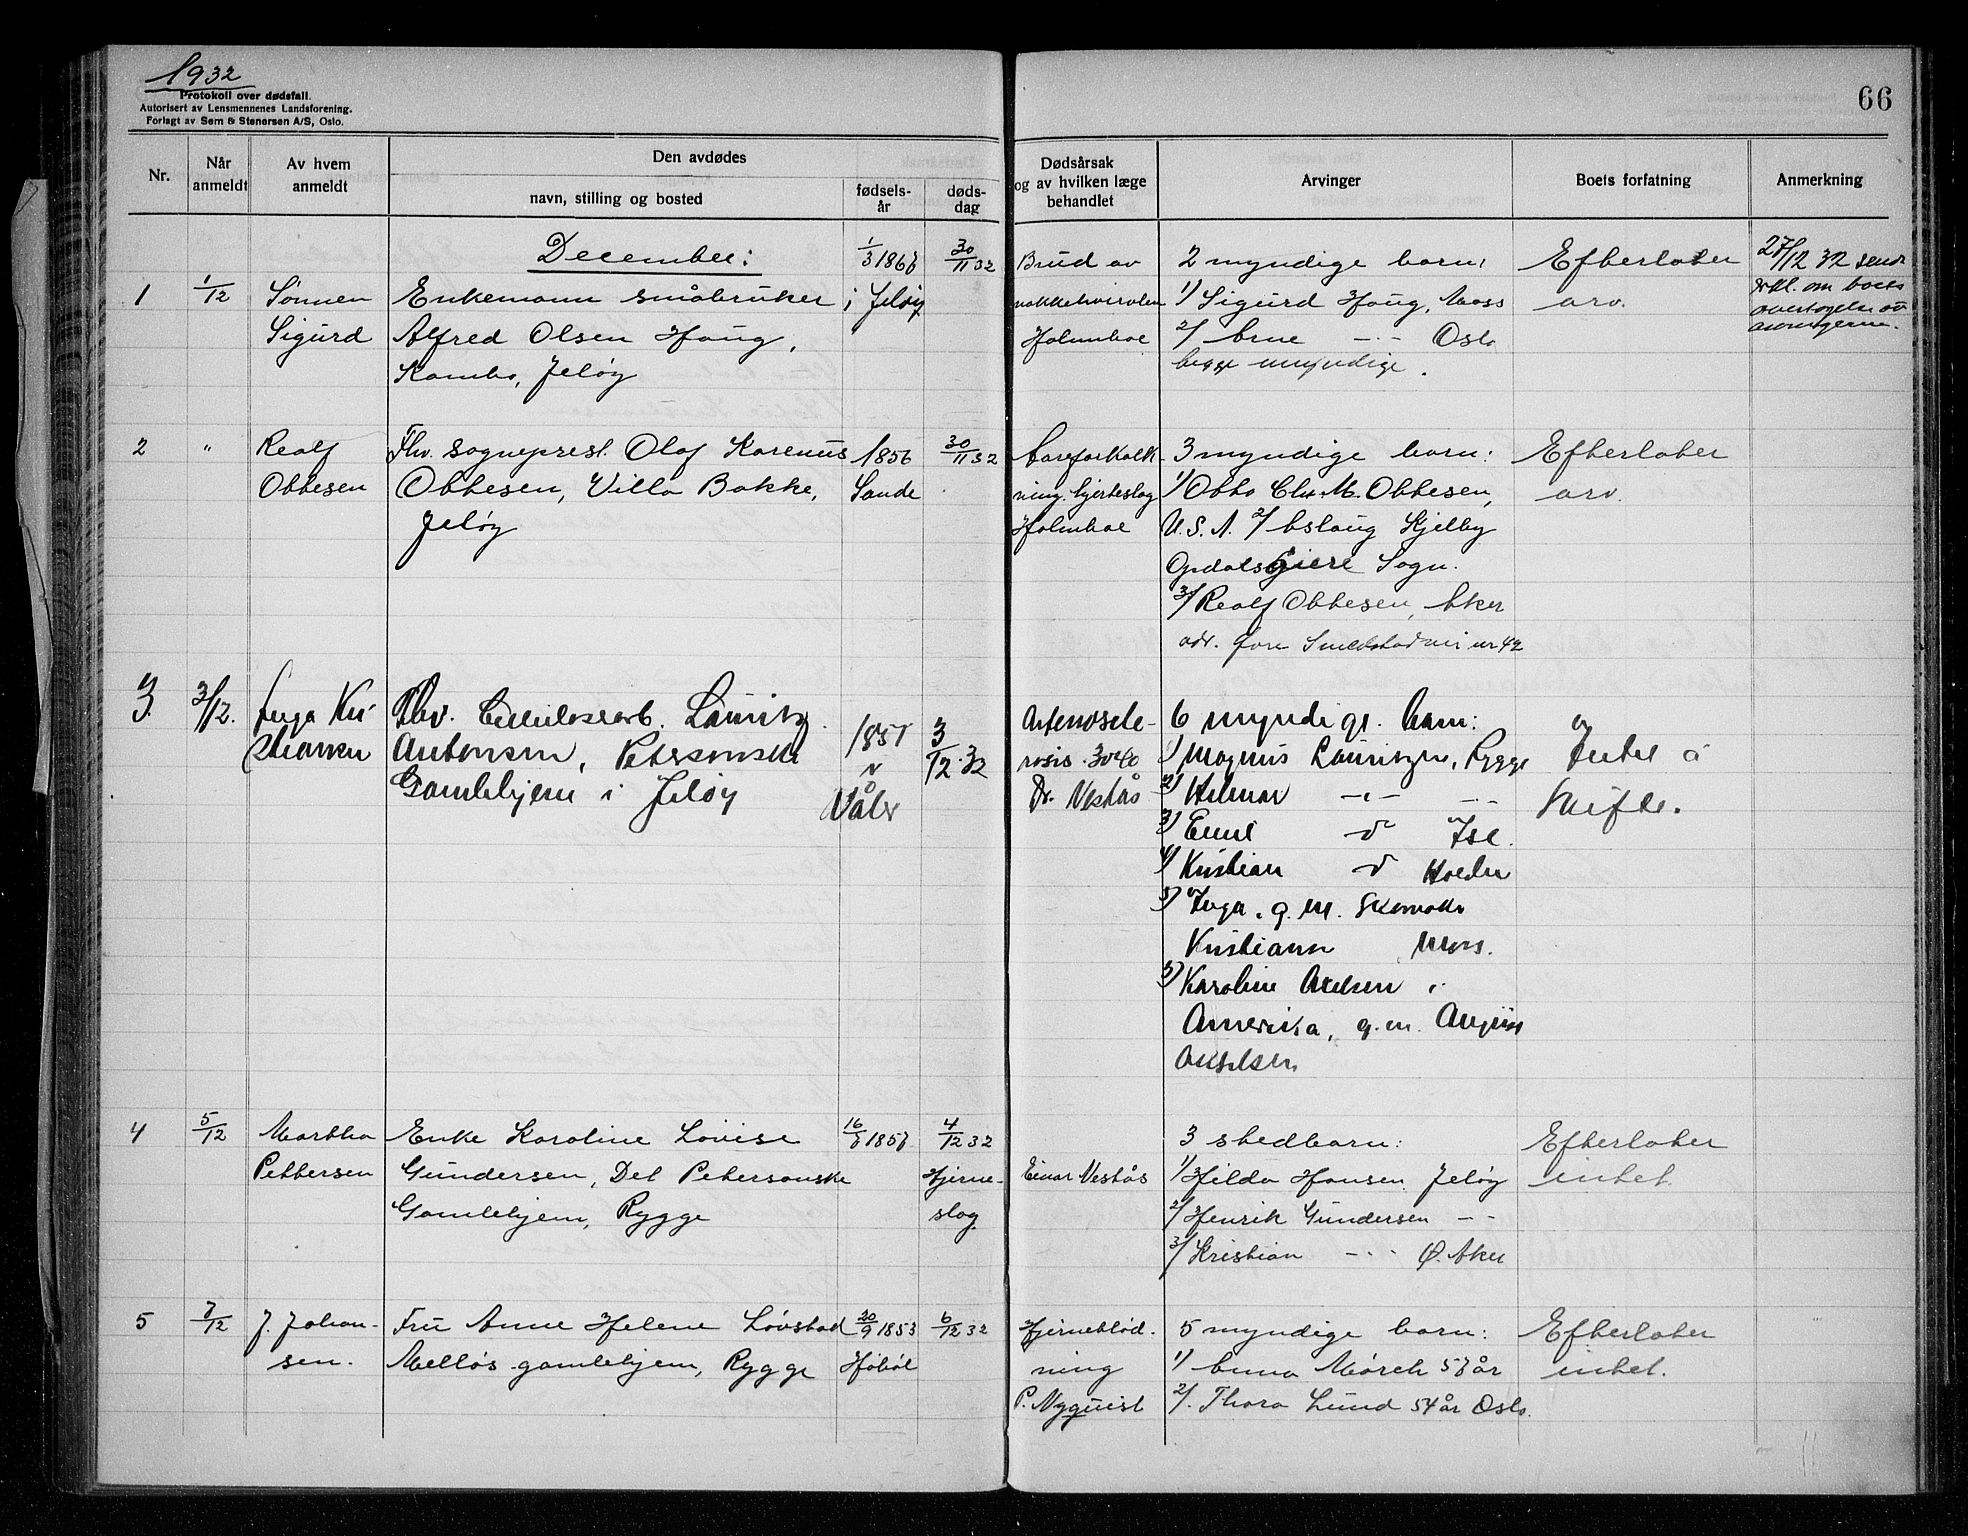 1932
Protokoll over dødsfall.
Autorisert av Lensmennenes Landsforening.
Forlagt av Sem & Stenersen A/S, Oslo.
66
Nr.
Når anmeldt
Av hvem anmeldt
Den avdødes
navn, stilling og bosted
fødsels-år
døds-dag
Dødsårsak og av hvilken læge behandlet
Arvinger
Boets forfatning
Anmerkning
December:
1
1/12
Sønnen
Sigurd
Enkemann småbruker
Alfred Olsen Haug,
Kambo, Jeløy
1/3 186
i Jeløy
30/11 32
Brud av
nakkehvirvlen
Holmboe
2 myndige barn:
1/ Sigurd Haug, Moss
2/ Arne -·- Oslo
begge myndige.
Efterlater
arv.
27/12 32 sendt
om boets
overtagelse av
arvingerne.
2
"
Realf
Ottesen
Fhv. Sogneprest Olaf Karenus
Ottesen, Villa Bakke,
Jeløy
1856
Sande
30/11 32
Åreforkalk-
ning. hjerteslag
Holmboe
3 myndige barn:
1/ Otto Chr. M. Ottesen,
U.S.A. 2/ Aslaug Kjelby
Sogn.
3/ Realf Ottesen, Aker
adr. nr 42
Efterlater
arv.
3.
3/12.
Inga Kri-
stiansen
Fhv. Cellulosearb. Lauritz
Antonsen, Petersonske
Gamlehjem i Jeløy
1851
Våler
3/12.32
Dr. Vestås
6 myndige barn:
1) Magnus Lauritzen, Rygge
2) Hilmar -·- -·-
3) Emil d
4) Kristian d
5) Inga, g.m.
Kristiansen Moss.
5) Karoline Axelsen i
Amerika, g.m. August
Axelsen
Intet å
skifte.
4
5/12
Martha
Pettersen
Enke Karoline Lovise
Gundersen, Det Petersonske
Gamlehjem, Rygge
4/12 32
Hjerne-
slag
Einar Vestås
3 stedbarn:
1/ Hilda Hansen Jeløy
2/ Henrik Gundersen - -
3/ Kristian -·- Ø. Aker
Efterlater
intet.
5
7/12
J. Johan-
sen.
Fru Anne Helene Løvstad
Melløs gamlehjem, Rygge
20/9 1853
Høbøl
6/12 32
Hjerneblød-
ning
P. Nyquist
5 myndige barn:
1/ Anna Mørch 57 år
2/. Thora Lund 54 år Oslo.
Efterlater
intet.